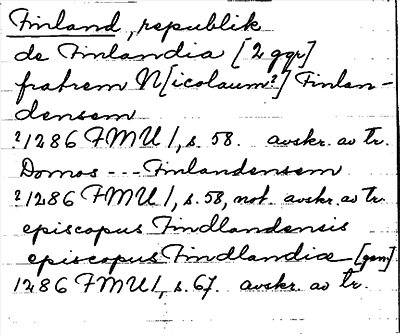 Finland, republik
de Finlandia [2 ggr]
fratrem N[icolaum?] Finlan-
densem
?1286 FMU 1, s. 58. avskr. av tr.
Domos --- Finlandensem
?1286 FMU 1, s. 58, not. avskr. av tr.
episcopus Findlandensis
episcopus Findlandiæ [gen]
1286 FMU 1, s. 67. avskr. av tr.